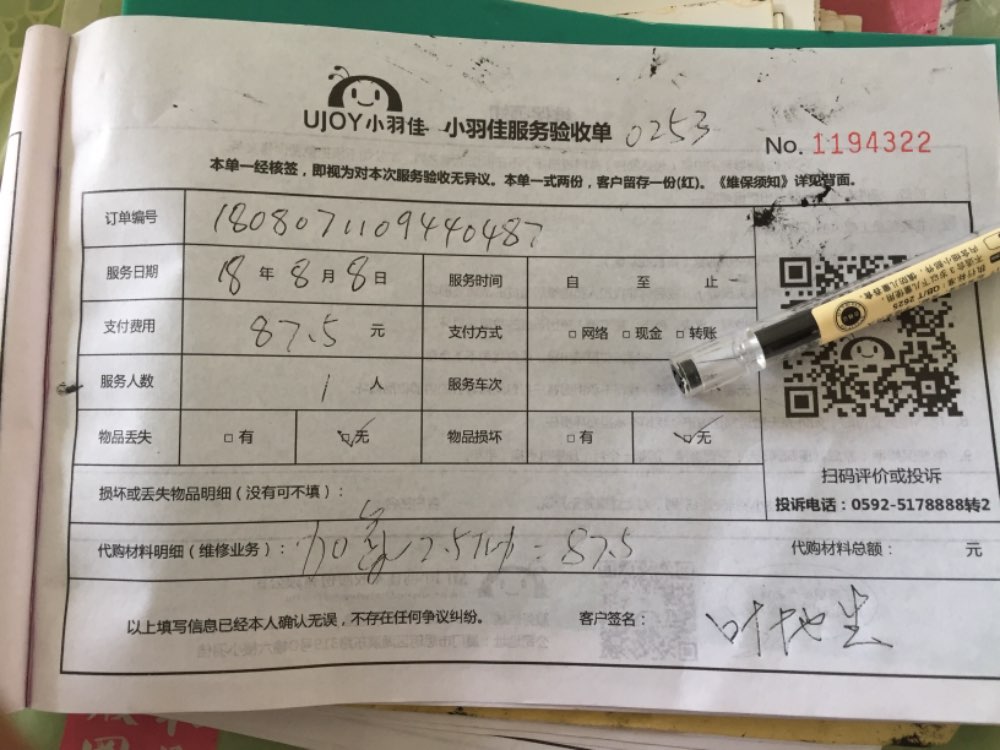 UJOY小羽佳 小羽佳服务验收单 0253
No. 1194322
本单一经核签，即视为对本次服务验收无异议。本单一式两份，客户留存一份(红)。《维保须知》详见背面。
订单编号 1808071109440487
服务日期 18 年 8 月 8 日 服务时间 自 至 止
支付费用 87.5 元 支付方式 □网络 □现金 □转账
服务人数 1 人 服务车次
物品丢失 □有 ☑无 物品损坏 □有 ☑无
扫码评价或投诉
投诉电话：0592-5178888转2
损坏或丢失物品明细（没有可不填）：
代购材料明细（维修业务）： 加氟 2.5 = 87.5 代购材料总额： 元
以上填写信息已经本人确认无误，不存在任何争议纠纷。 客户签名： 叶艳生
执行标准：QB/T 2625
不适合3岁以下儿童使用
内含细小部件，慎防儿童吞食